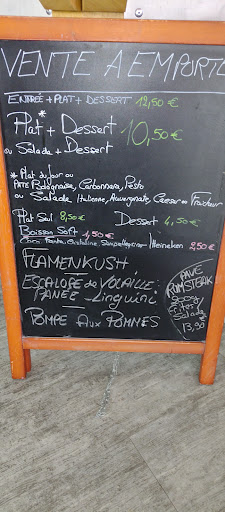 VENTE A EMPORTE
ENTREE + PLAT + DESSERT 12,50 €
Plat* + Dessert 10,50 €
ou Salade + Dessert
* Plat du jour ou
PATE Bolognaise, Carbonnara, Pesto
ou Salade Italienne, Auvergnate, Caesar ou Fraicheur
Plat Seul 8,50 € Dessert 4,50 €
Boisson Soft 1,50 €
Coca, Fanta, Oristaline, Sanpellegrino - Heineken 2,50 €
FLAMENKUSH
ESCALOPE de VOLAILLE
PANEE - Linguini
POMPE AUX POMMES
PAVE
RUMSTEAK
200g
Frites/
Salade
13,90